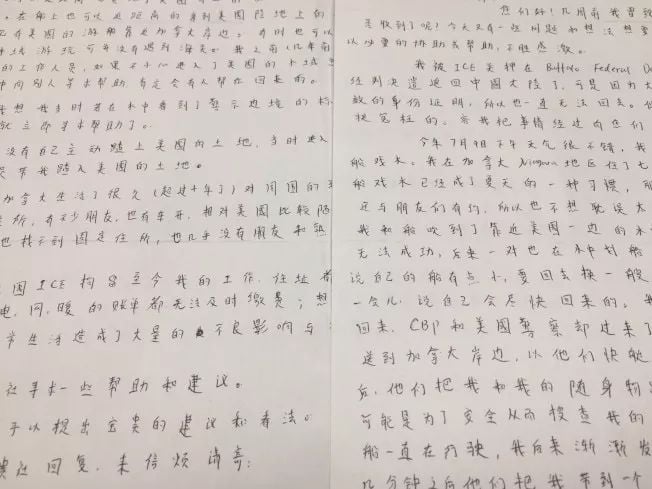 在船上也可以近距离的看到美国陆地上的
有美国的游船靠近加拿大岸边。有时也可以
游玩可并没有遇到海关。我之前几年前
的工作人员,如果不小心进入了美国的水域
向别人寻求帮助,肯定会有人帮你回来的。
我想我当时若在水中看到了警示边境的标
就立即寻求帮助了。
没有自己主动踏上美国的土地,当时进入
带我踏入美国的土地。
加拿大生活了很久(超过十年了)对周围的
住所,有不少朋友,也有车开,相对美国比较陌
也找不到固定住所,也几乎没有朋友和熟
国ICE拘留至今我的工作,住址都
电,网,暖的账单都无法及时缴费;想
常生活造成了大量的不良影响与
寻求一些帮助和建议。
予以提出宝贵的建议和看法。
回复,来信烦请寄:
您们好!几周前我曾
是收到了呢?今天又有一些问题和想法想要
以必要的协助或帮助,不胜感激。
我被ICE关押在Buffalo Federal De
经判决遣返回中国大陆了,可是因为
效的身份证明,所以也一直无法回去。
冤枉的。容我把事情经过向您们
今年7月9日下午天气很不错,我
船戏水。我在加拿大Niagara地区住了七
船戏水已经成了夏天的一种习惯,
还与朋友们有约,所以也不想耽误太
我和船吹到了靠近美国一边的水
无法成功,后来一对也在水中划船
说自己的船有点小,要回去换一般
一会儿,说自己会尽快回来的。
回来,CBP和美国警察却过来了
送到加拿大岸边,以他们快艇
后,他们把我和我的随身物
可能是为了安全从而搜查我的
船一直在行驶,我后来渐渐发
几分钟之后他们把我带到一个